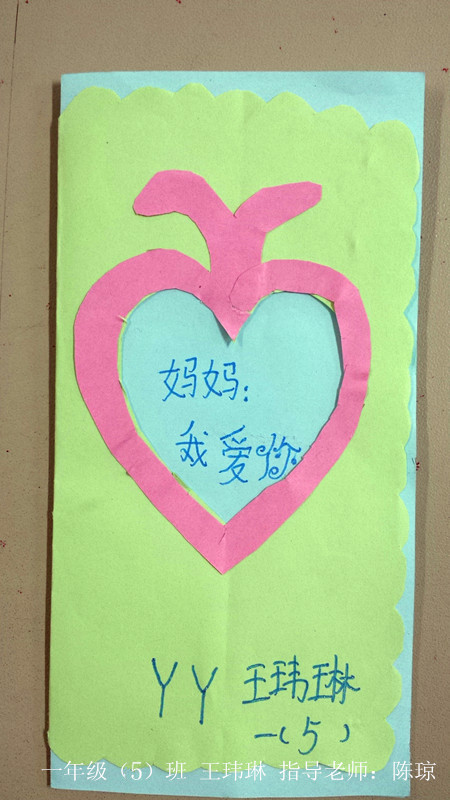 妈妈：
我爱你
YY 王玮琳
一（5）
一年级（5）班 王玮琳 指导老师：陈琼